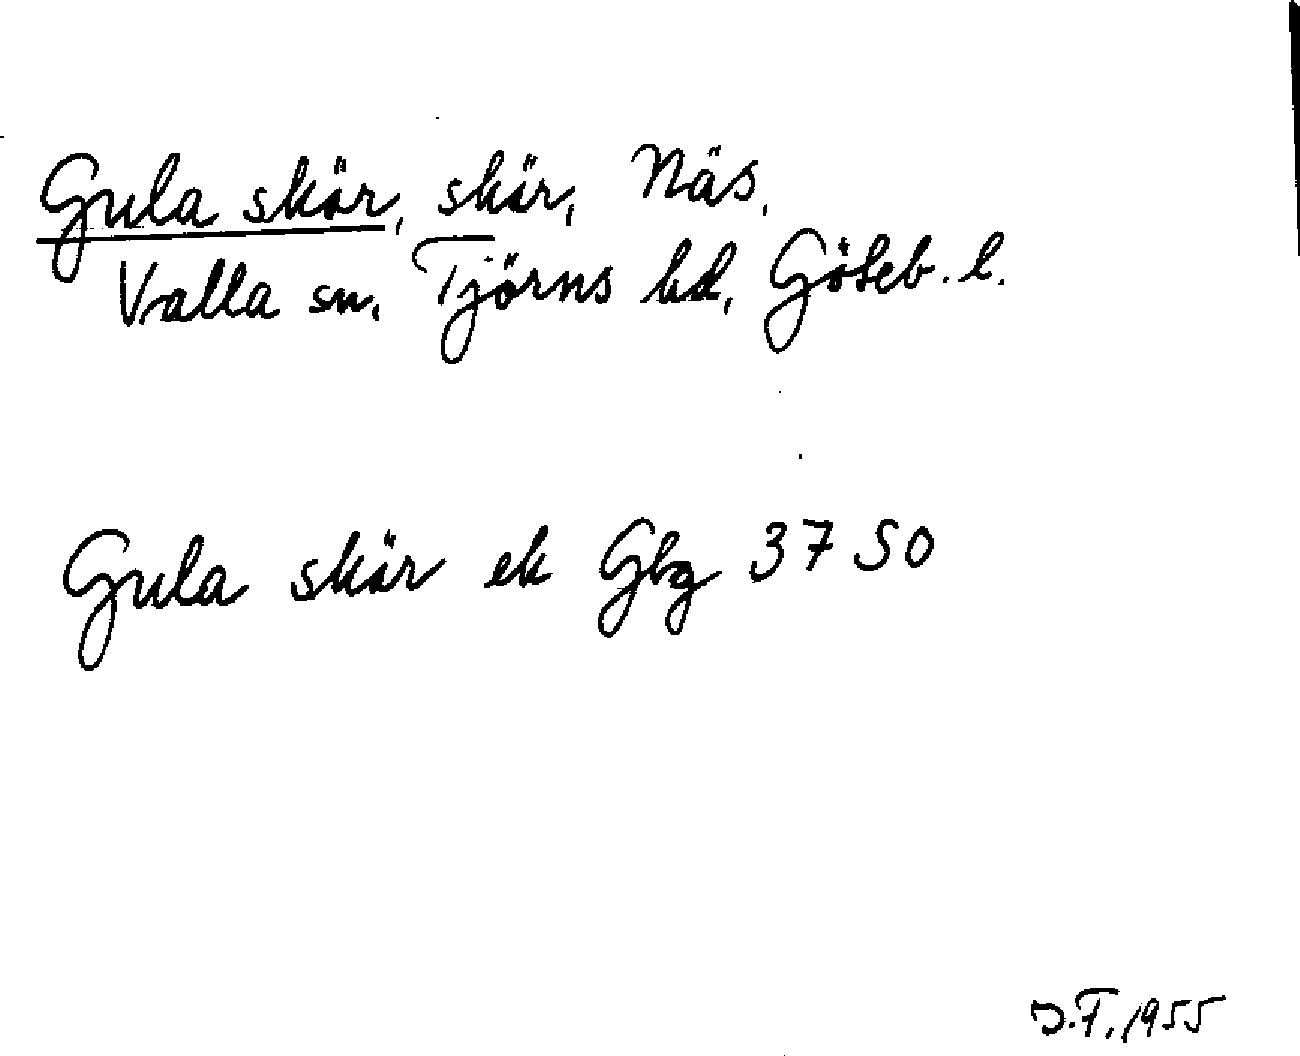 Gula skär, skär, Näs,
Valla sn, Tjörns hd, Göteb. l.
Gula skär ek Gbg 3750
J.F. 1955